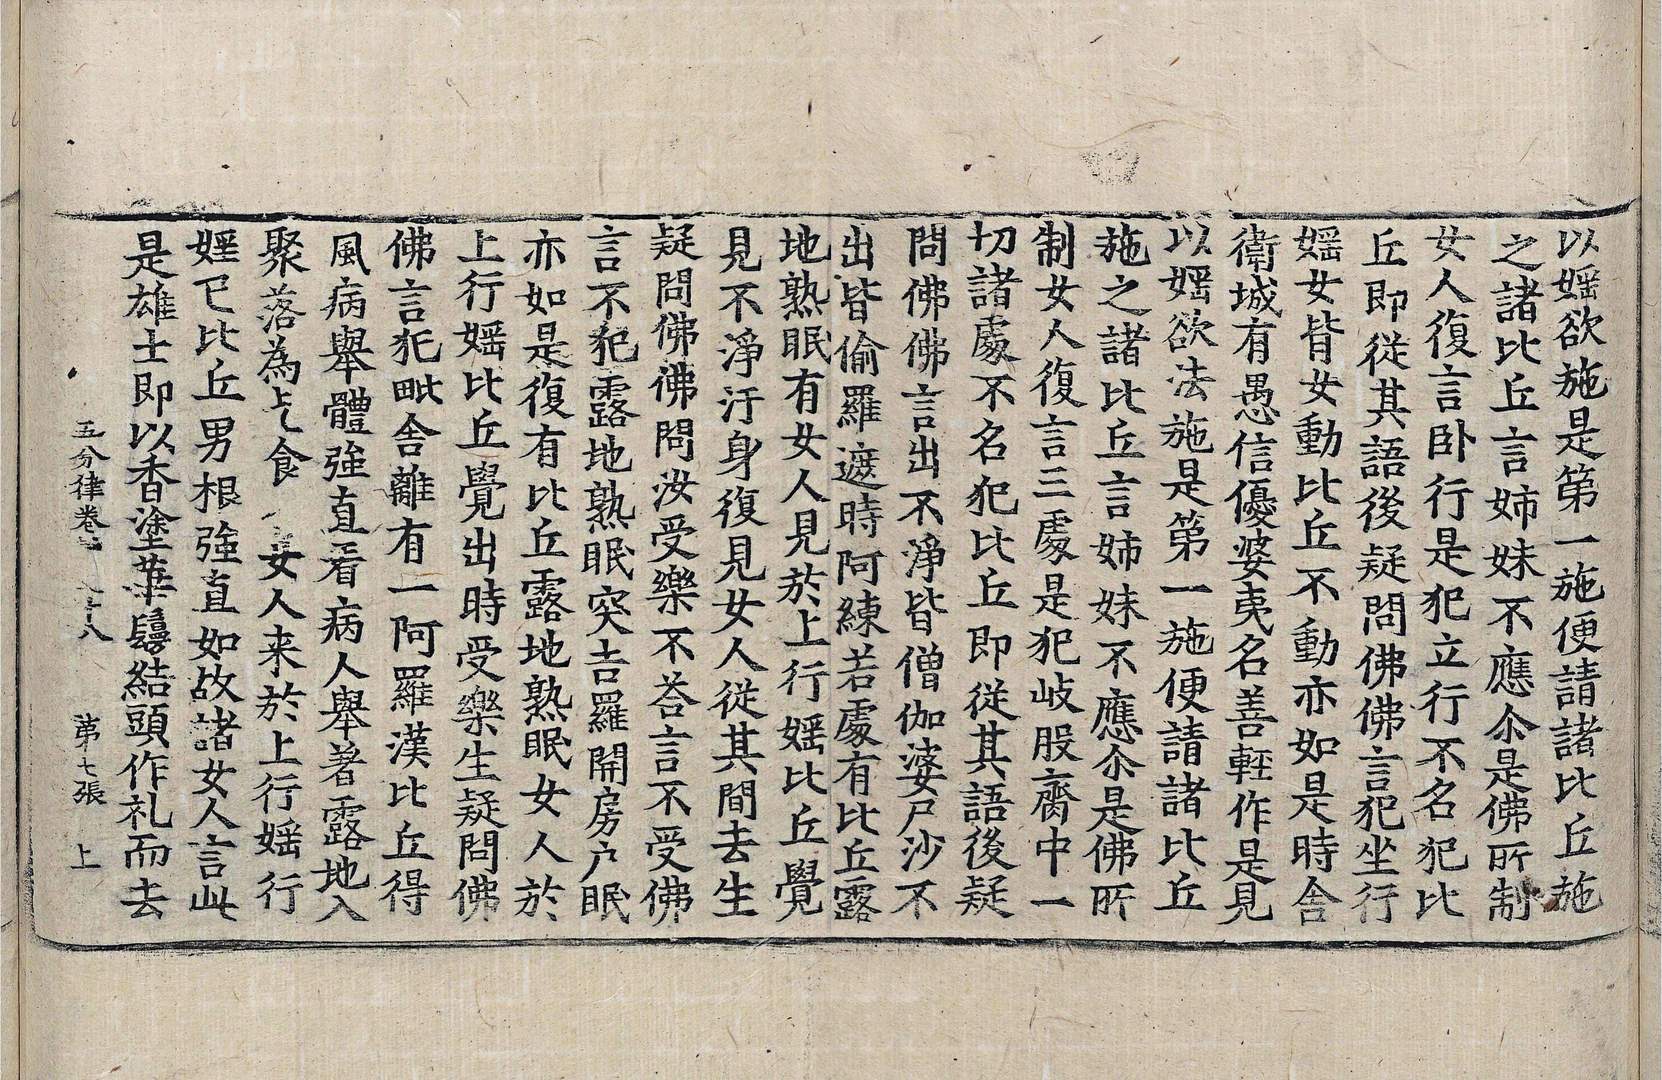 以婬欲施是第一施便請諸比丘施
之諸比丘言姉妹不應尒是佛所制
女人復言卧行是犯立行不名犯比
丘即從其語後疑問佛佛言犯坐行
婬女皆女動比丘不動亦如是時舍
衛城有愚信優婆夷名善輕作是見
以婬欲法施是第一施便請諸比丘
施之諸比丘言姉妹不應尒是佛所
制女人復言三處是犯岐股齎中一
切諸處不名犯比丘即從其語後疑
問佛佛言出不淨皆僧伽婆尸沙不
出皆偷羅遮時阿練若處有比丘露
地熟眠有女人見於上行婬比丘覺
見不淨汙身復見女人從其間去生
疑問佛佛問汝受樂不荅言不受佛
言不犯露地熟眠突吉羅開房户眠
亦如是復有比丘露地熟眠女人於
上行婬比丘覺出時受樂生疑問佛
佛言犯毗舍離有一阿羅漢比丘得
風病舉體強直看病人舉著露地入
聚落為乞食女人来於上行婬行
婬已比丘男根強直如故諸女人言此
是雄士即以香塗華鬘結頭作礼而去
五分律卷十八 第七張 上